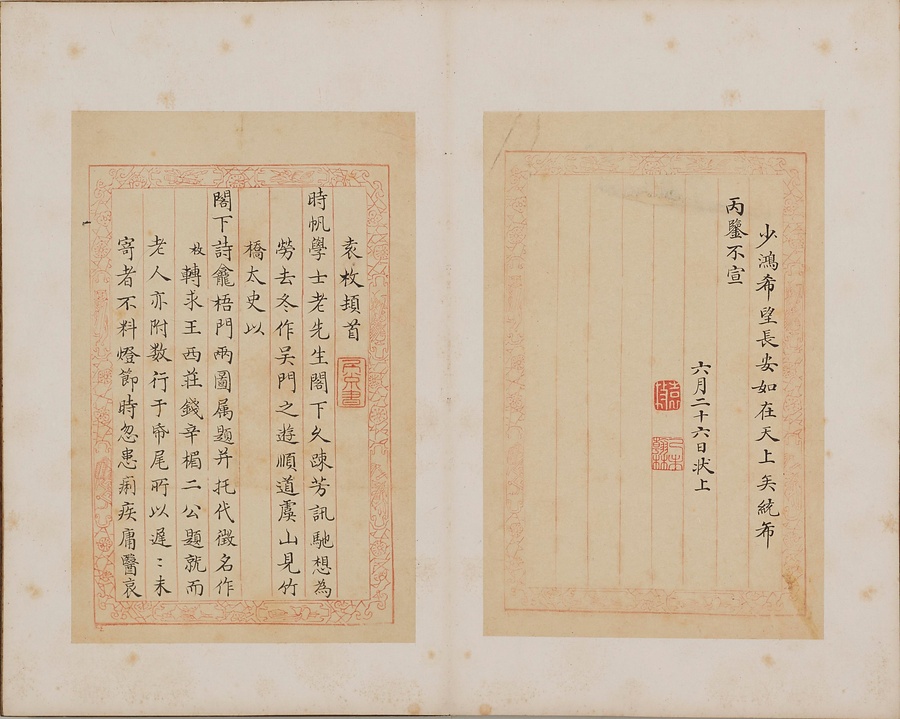 少鴻希望長安如在天上矣統布
丙鑒不宣
六月二十六日狀上
袁枚頓首
時帆學士老先生閣下久踈芳訊馳想為
勞去冬作吳門之遊順道虞山見竹
橋太史以
閣下詩龕梧門兩圖属題并托代徵名作
枚轉求王西莊錢辛楣二公題就而
老人亦附數行于帋尾所以遲〻未
寄者不料燈節時忽患痢疾庸醫哀